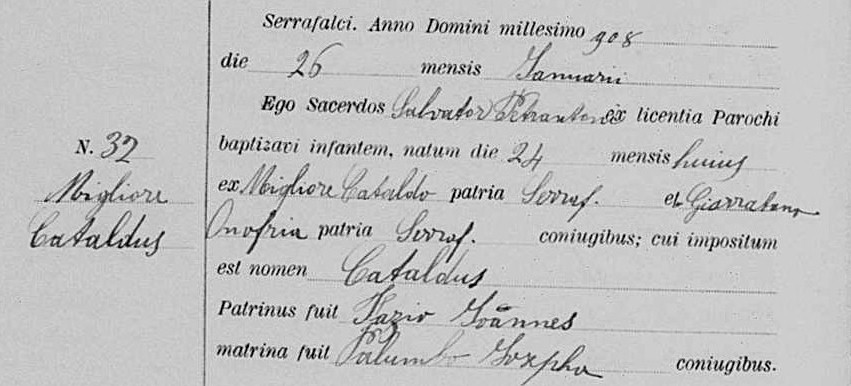 Serrafalci. Anno Domini millesimo 908
die 26 mensis Januarii
Ego Sacerdos Salvator Petrantoni ex licentia Parochi
N. 32
baptizavi infantem, natum die 24 mensis huius
Migliore
ex Migliore Cataldo patria Serraf. et Giarratano
Cataldus
Onofria patria Serraf. coniugibus; cui impositum
est nomen Cataldus
Patrinus fuit Fazio Joannes
matrina fuit Palumbo coniugibus.